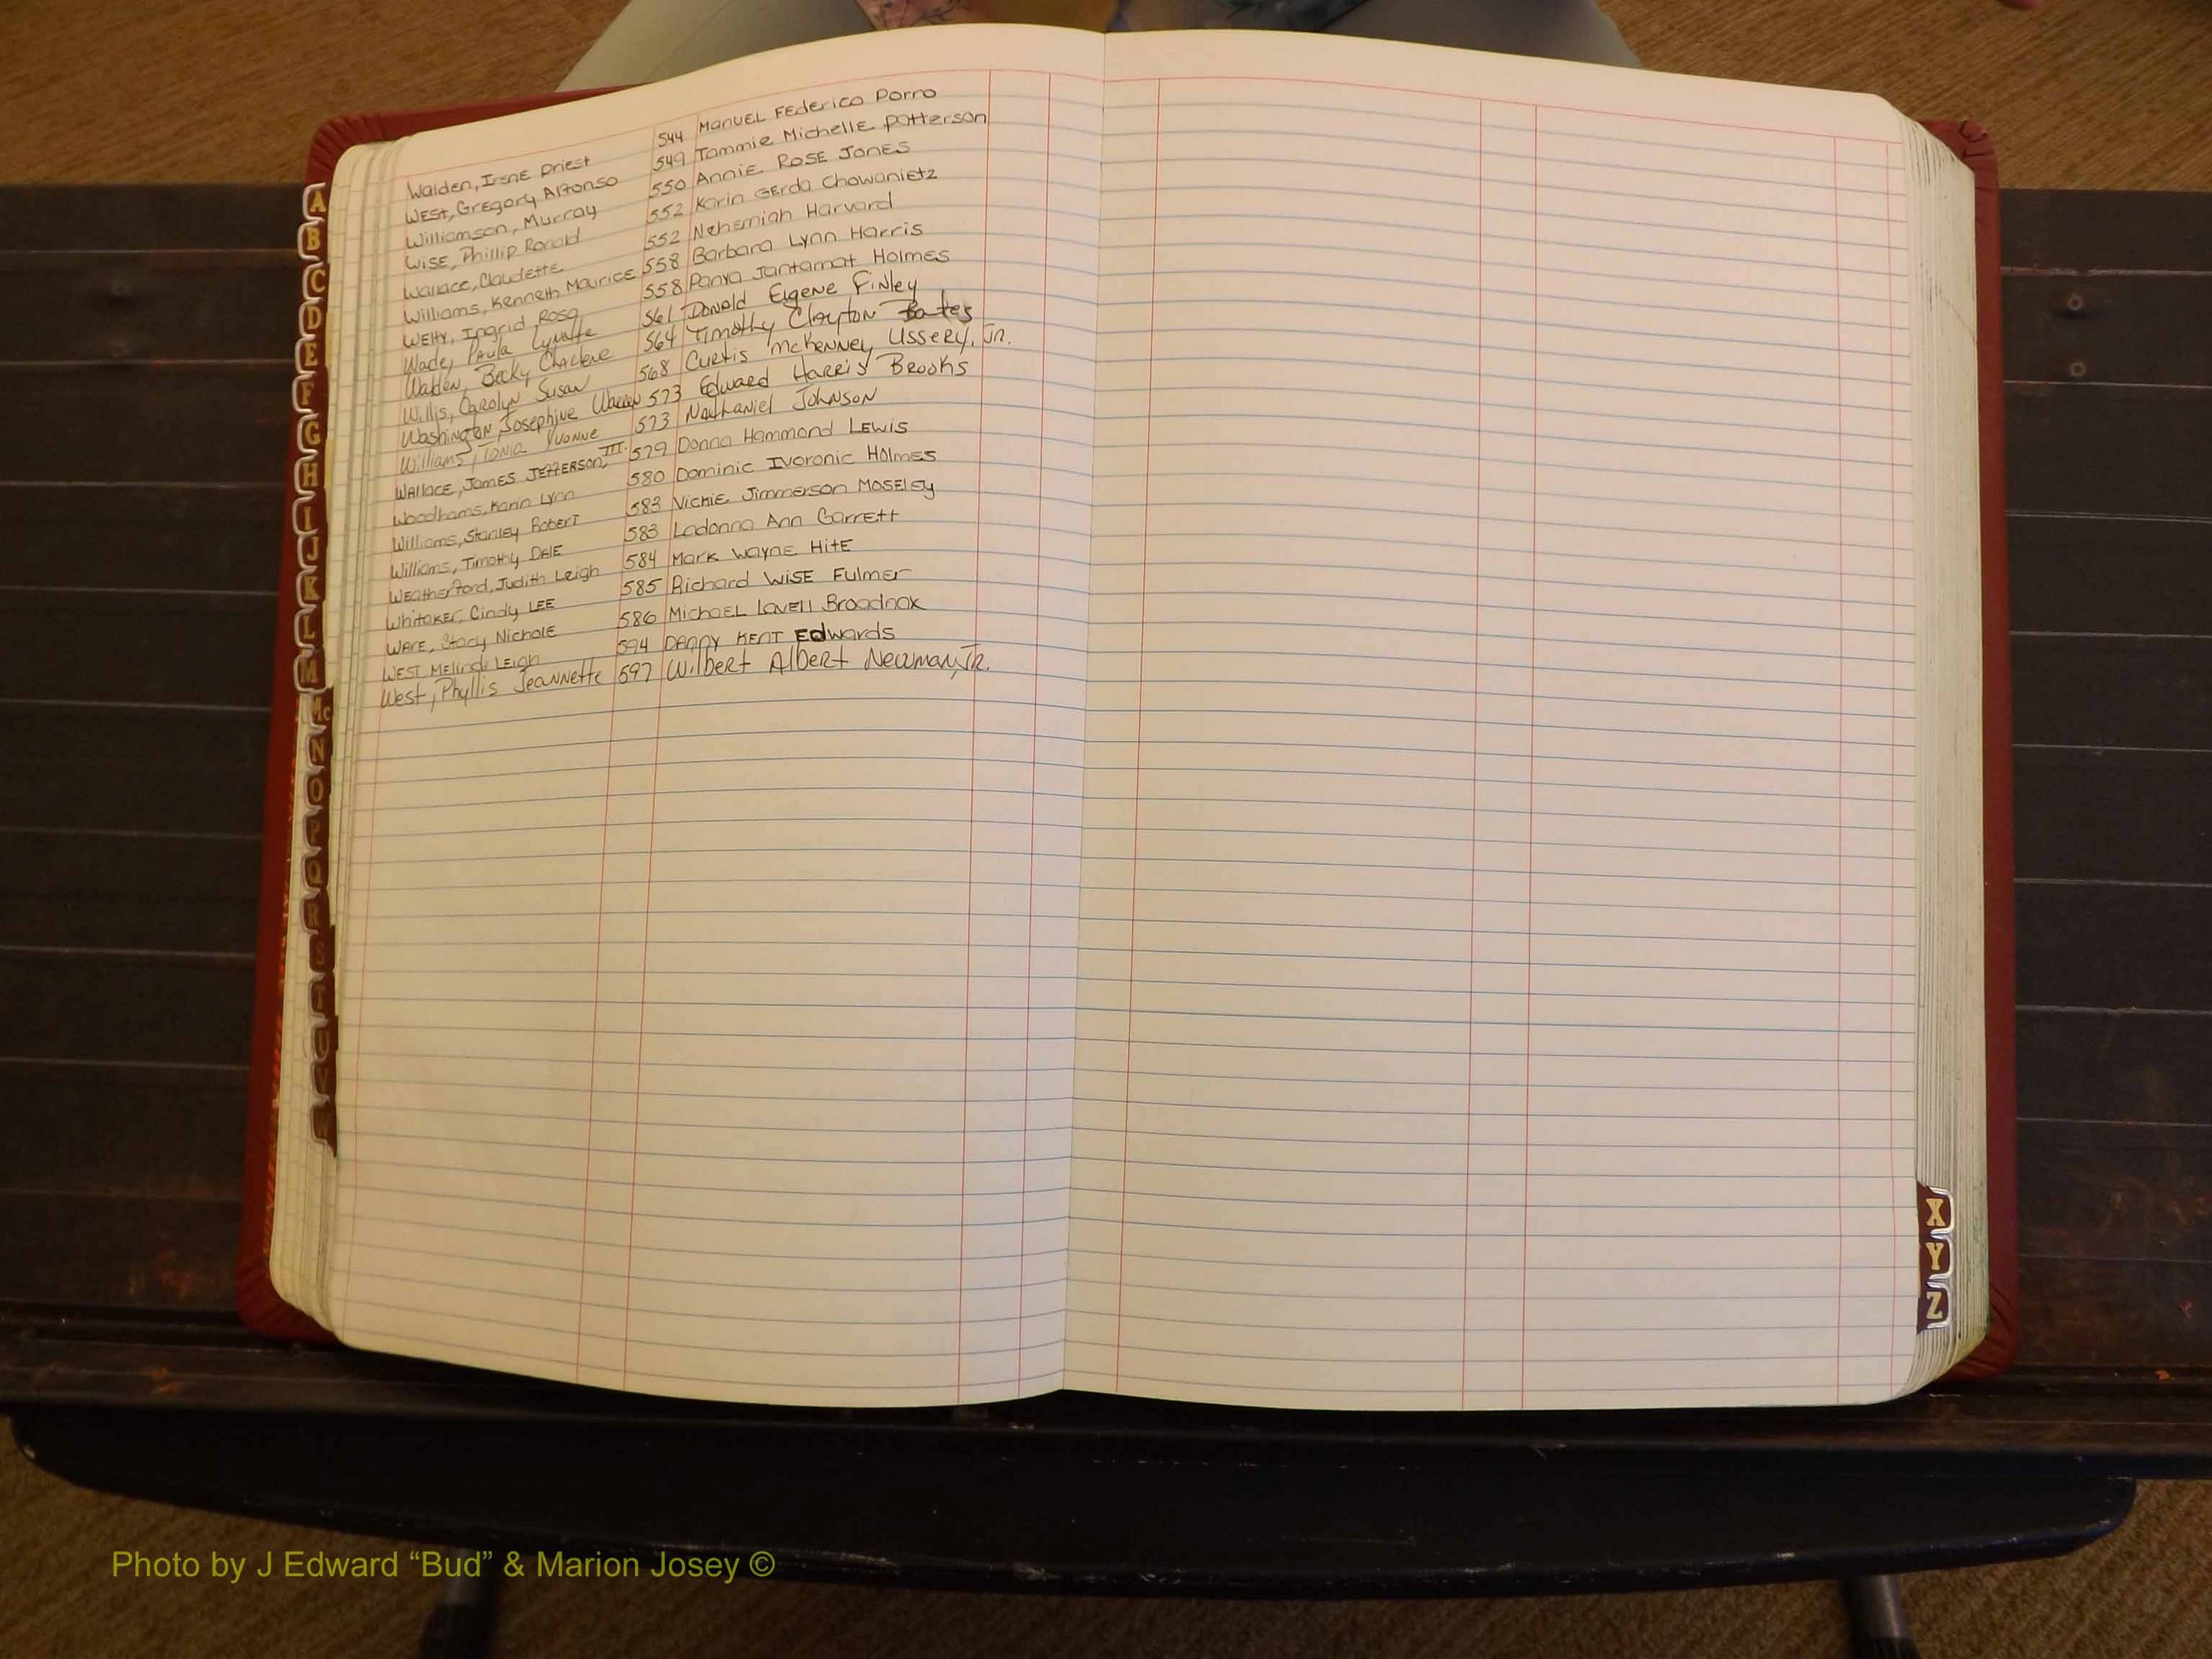 Walden, Irene Priest 544 Manuel Federico Porro
West, Gregory Alfonso 549 Tammie Michelle Patterson
Williamson, Murray 550 Annie Rose Jones
Wise, Phillip Ronald 552 Karin Gerda Chowanietz
Wallace, Claudette 552 Nehemiah Harvard
Williams, Kenneth Maurice 558 Barbara Lynn Harris
Welty, Ingrid Rosa 558 Panya Jantamat Holmes
Wade, Paula Lynette 561 Donald Eugene Finley
Walden, Becky Charlene 564 Timothy Clayton Bates
Willis, Carolyn Susan 568 Curtis McKenney Ussery, Jr.
Washington, Josephine Warren 573 Edward Harris Brooks
Williams, Tonia Yvonne 573 Nathaniel Johnson
Wallace, James Jefferson, III. 579 Donna Hammond Lewis
Woodhams, Karin Lynn 580 Dominic Ivoronic Holmes
Williams, Stanley Robert 583 Vickie Jimmerson Moseley
Williams, Timothy Dale 583 Ladonna Ann Garrett
Weatherford, Judith Leigh 584 Mark Wayne Hite
Whitaker, Cindy Lee 585 Richard Wise Fulmer
Ware, Stacy Nichole 586 Michael Lavell Broadnax
West Melinda Leigh 594 Danny Kent Edwards
West, Phyllis Jeannette 597 Wilbert Albert Newman, Jr.
A
B
C
D
E
F
G
H
I
J
K
L
M
Mc
N
O
P
Q
R
S
T
U
V
W
X
Y
Z
Photo by J Edward “Bud” & Marion Josey ©